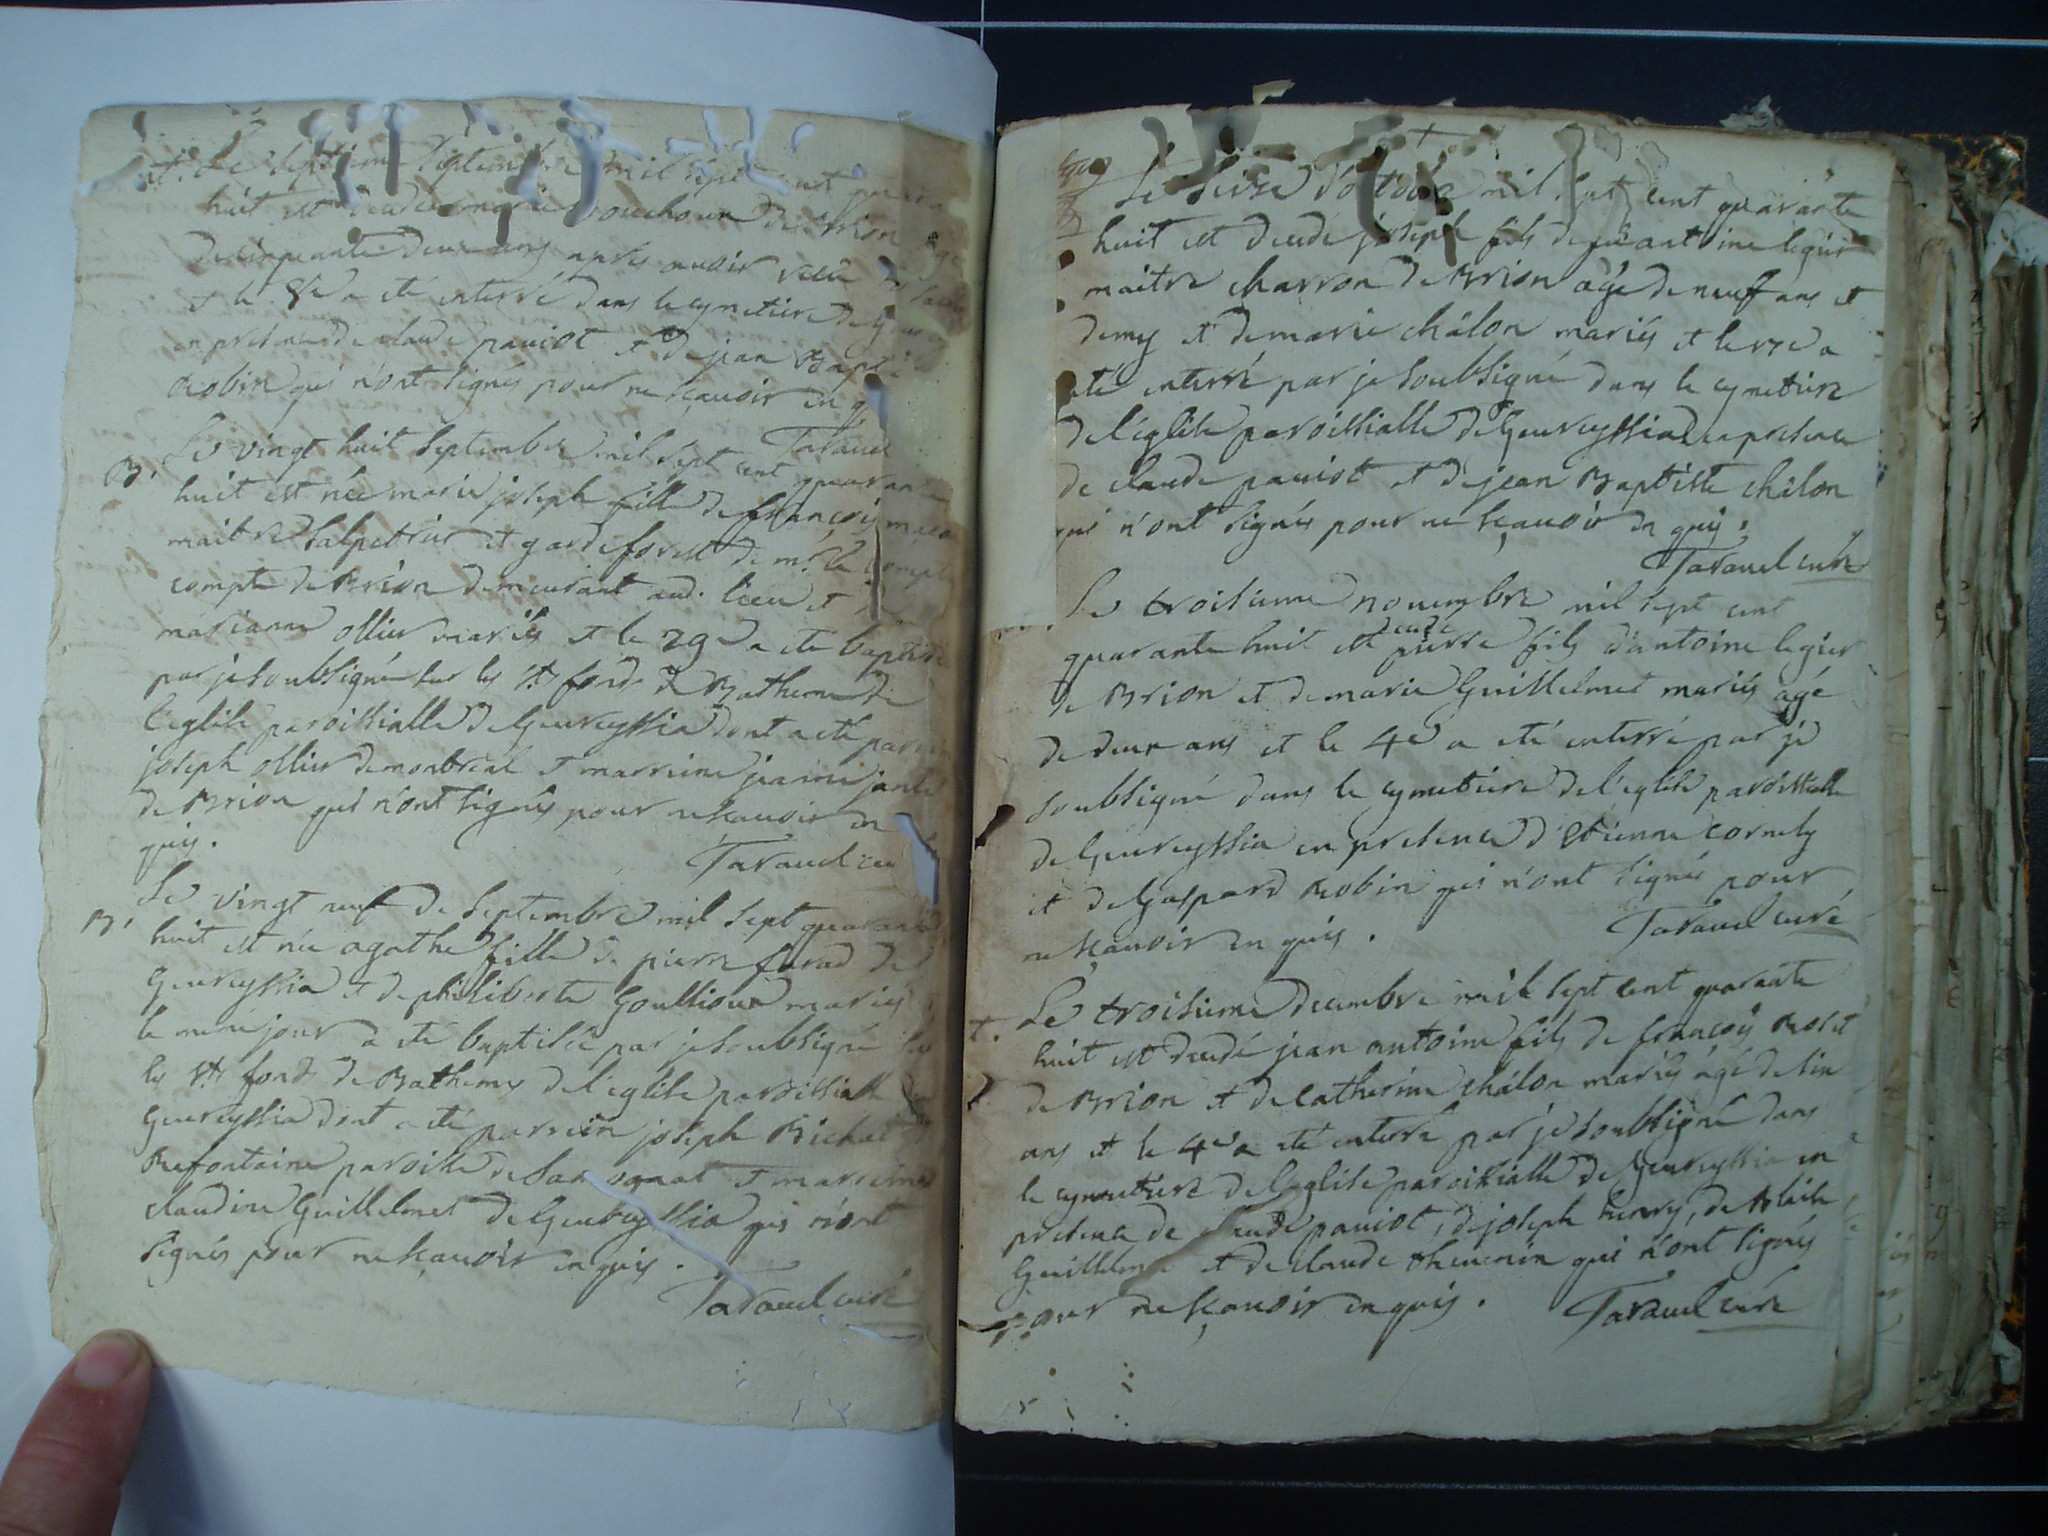 t. Le septieme septembre mil sept cent quara
huit est decedée marie bouchour de Brion age
de cinquante deux ans apres avoir recû
et le 8e a eté enterré dans le cymetiere de
en presence de claude paviot et de jean Bapt
Robin qui n'ont signés pour ne sçavoir en q
Taravel
B. Le vingt huit septembre mil sept cent quarante
huit est née marie joseph fille de françois
maitre salpetrier et garde forest de mr. le compte
compte de Brion demeurant aud. lieu et de
marianne ollier mariés et le 29e a ete baptisée
par je soubsigné sur les sts fonds de Batheme de
l'eglise paroissialle de Gevreyssia dont a eté parein
joseph ollier de montreal et marreine jeanne
de Brion qui n'ont signés pour ne scavoir en
quis.
Taravel cu
B. Le vingt neuf de septembre mil sept quarante
huit est née agathe fille de pierre favad de
Gevreyssia et de philiberte Goussioux mariés
le meme jour a eté baptisée par je soubsigné sur
les sts fonds de Bathemes de l'eglise paroissialle
Gevreyssia dont a eté parrein joseph Bichat
Refontaine paroisse de et marreine
claudine Guillelmet de Gevreyssia qui n'ont
signés pour ne sçavoir en quis.
Taravel curé
Le seize d'octobre mil sept cent quarante
huit est decedé joseph fils de feu antoine legier
maitre charron de Brion agé de neuf ans et
demy et de marie châlon mariés et le 17e a
eté enterré par je soubsigné dans le cymetiere
de l'eglise paroissialle de Gevreyssia en presence
de claude paviot et de jean Baptiste châlon
qui n'ont signés pour ne sçavoir en quis.
Taravel curé
Le troisieme novembre mil sept cent
quarante huit est decedé pierre fils d'antoine legier
de Brion et de marie Guillelmet mariés agé
de deux ans et le 4e a eté enterré par je
soubsigné dans le cymetiere de l'eglise paroissialle
de Gevreyssia en presence d'etienne cornely
et de Gaspard Robin qui n'ont signés pour
ne sçavoir en quis.
Taravel curé
t. Le troisieme decembre mil sept cent quarante
huit est decedé jean antoine fils de françois Rolet
de Brion et de catherine châlon mariés agé de six
ans et le 4e a eté enterré par je soubsigné dans
le cymetiere de l'eglise paroissialle de Gevreyssia en
presence de claude paviot, de joseph henry, de
Guillelme et de claude thevenin qui n'ont signés
pour ne sçavoir en quis.
Taravel curé